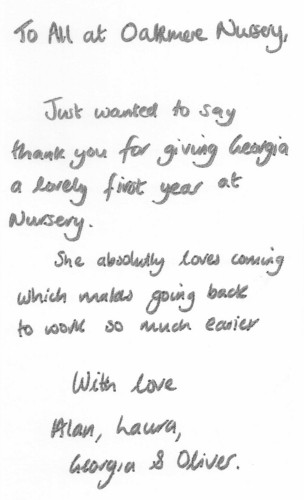 To All at Oakmere Nursery,
Just wanted to say
thank you for giving Georgia
a lovely first year at
Nursery.
She absolutly loves coming
which makes going back
to work so much easier
With love
Alan, Laura,
Georgia & Oliver.